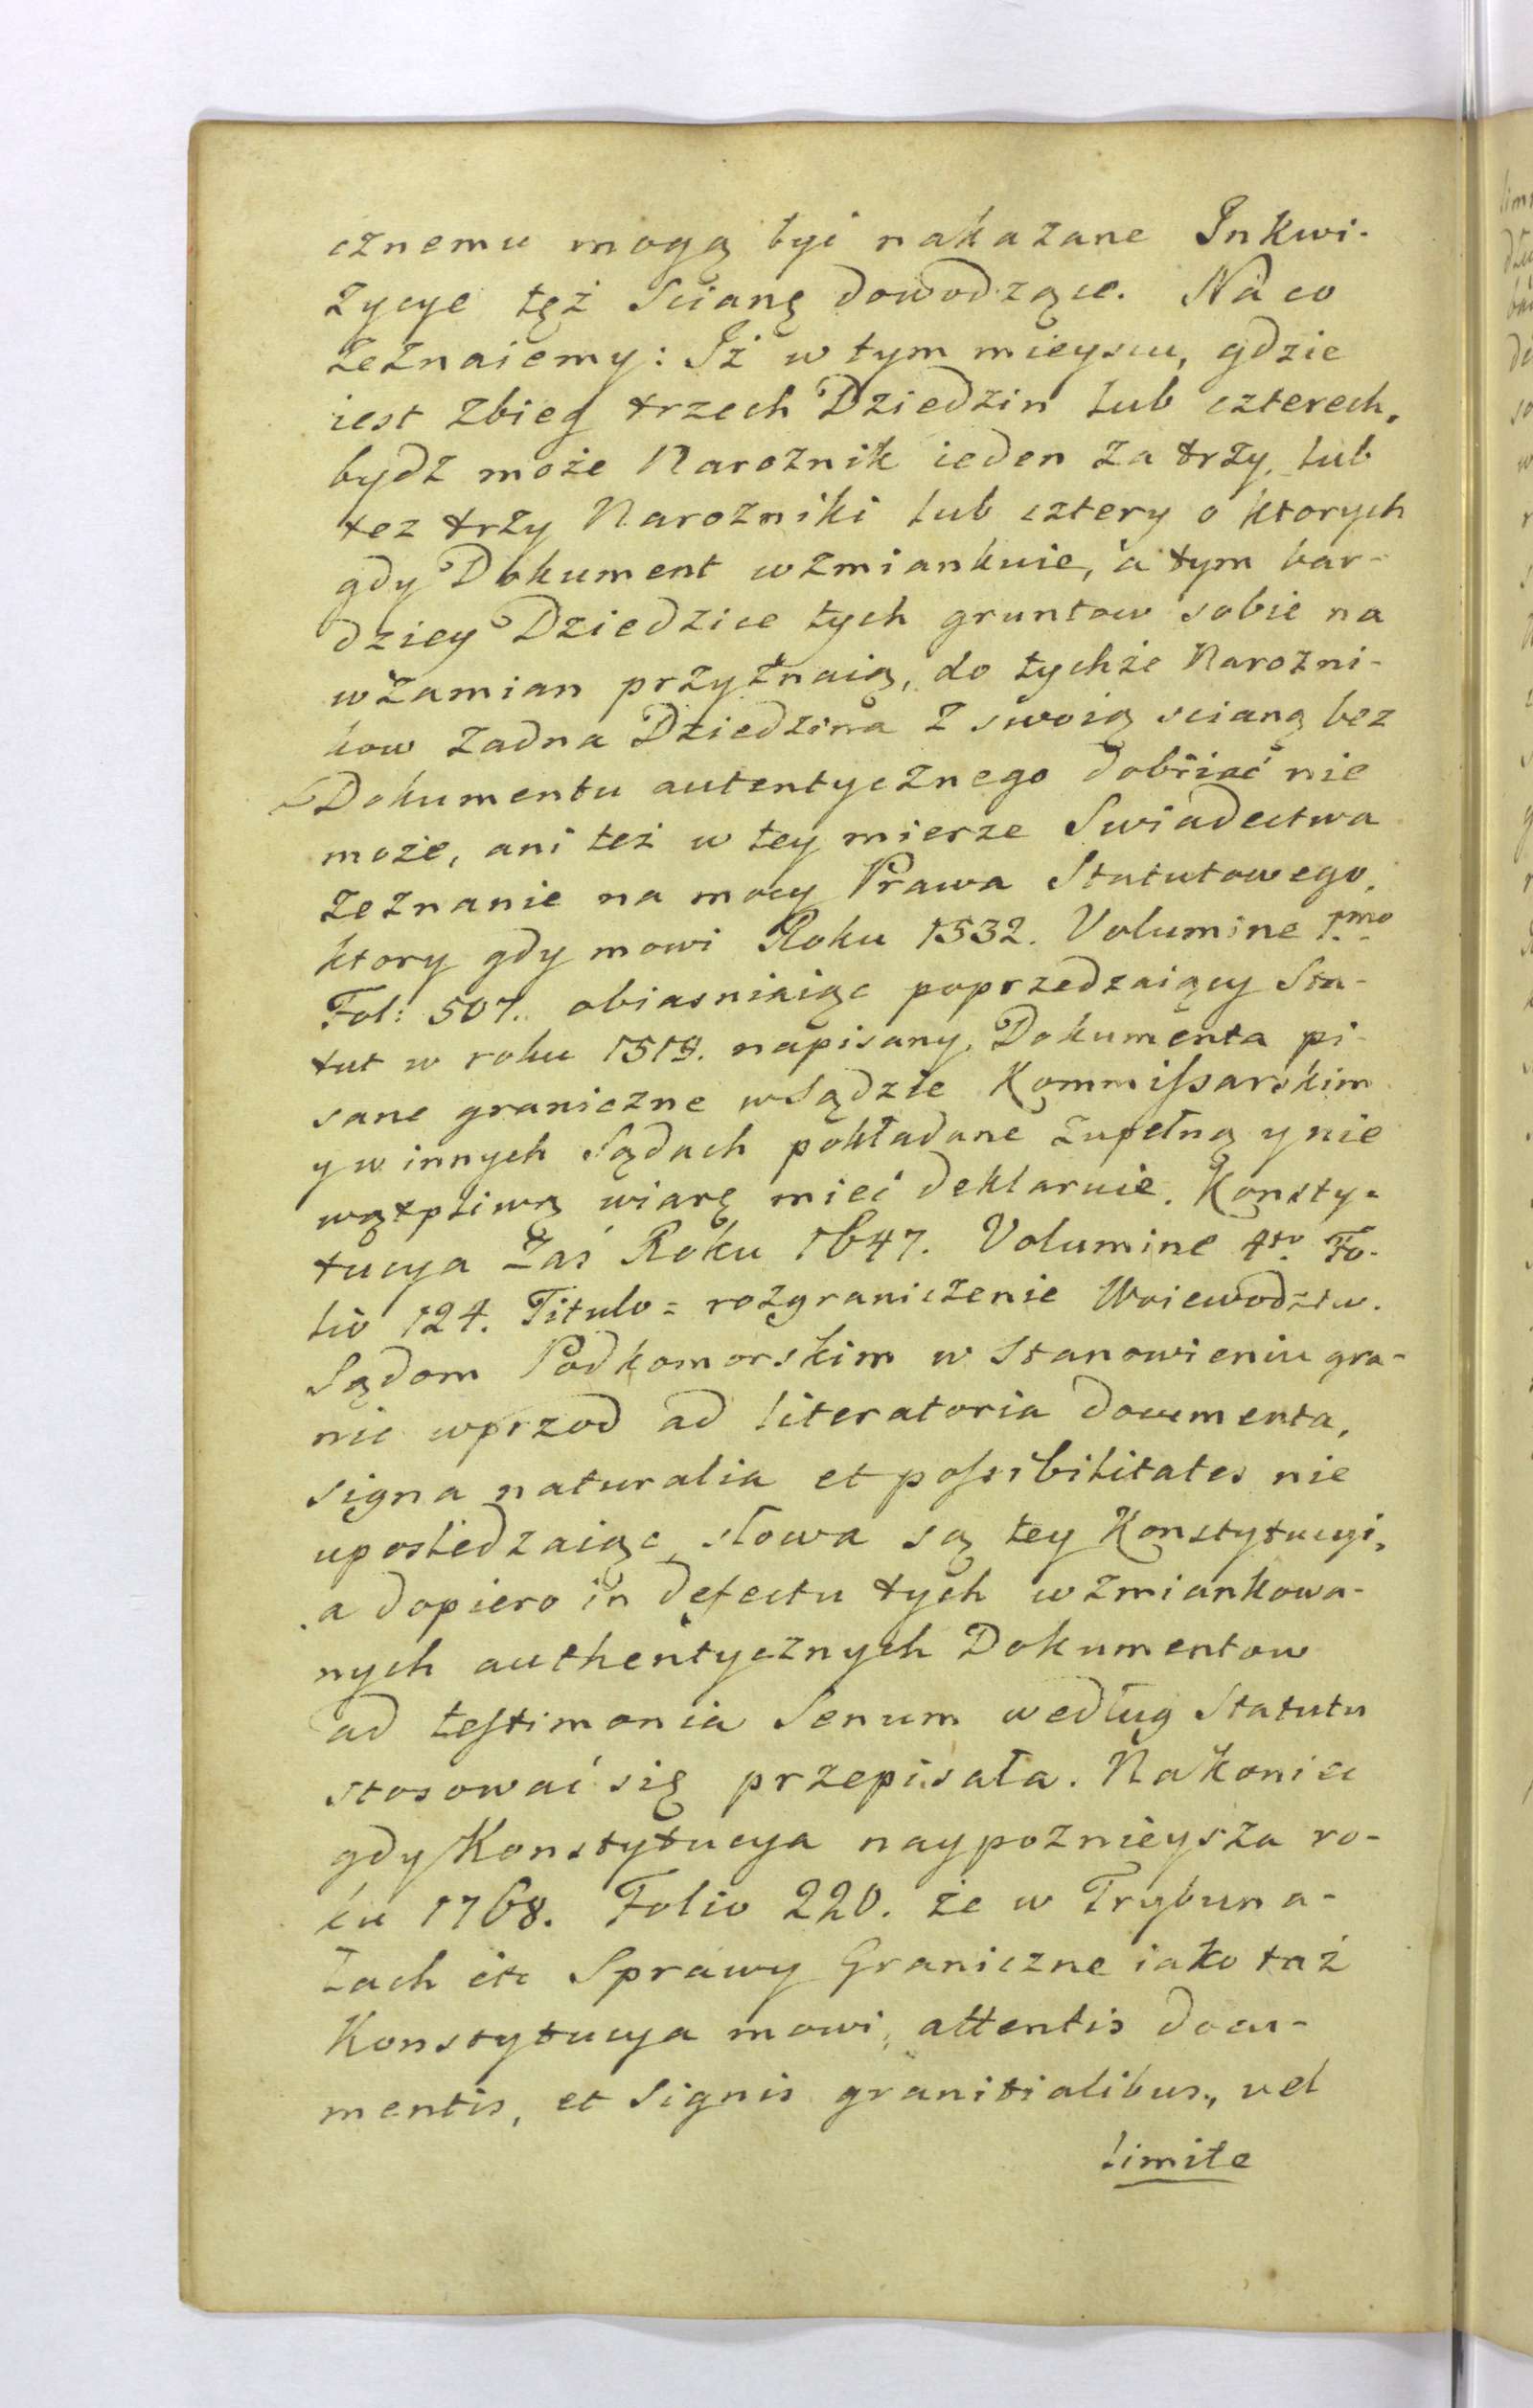 cznemu mogą być nakazane Inkwi-
zycye tęż Scianę dowodzące. Na co
zeznaiemy: Iż w tym mieyscu, gdzie
iest zbieg trzech Dziedzin lub czterech,
bydz może Naroznik ieden za trzy, lub
tez trzy Narozniki lub cztery o ktorych
gdy Dokument wzmiankuie, a tym bar-
dziey Dziedzice tych gruntow sobie na
wzamian przyznaią, do tychże Narozni-
kow zadna Dziedzina z swoią scianą bez
Dokumentu autentycznego dobrać nie
może, ani też w tey mierze Swiadectwa
zeznanie na mocy Prawa Statutowego,
ktory gdy mowi Roku 1532. Volumine 1.mo
Fol: 507. obiasniaiąc poprzedzaiący Sta-
tut w roku 1519. napisany, Dokumenta pi-
sane graniczne w Sądzie Kommissarskim
y w innych Sądach pokładane zupełną y nie
wątpliwą wiarę mieć deklaruie. Konsty-
tucya zaś Roku 1647. Volumine 4to. Fo-
lio 124. Titulo = rozgraniczenie Woiewodztw.
Sądom Podkomorskim w Stanowieniu gra-
nic wprzod ad literatoria documenta,
signa naturalia et possibilitates nie
uposledzaiąc, słowa są tey Konstytucyi,
a dopiero in defectu tych wzmiankowa-
nych authentycznych Dokumentow
ad testimonia Senum według Statutu
stosować się przepisała. Nakoniec
gdy Konstytucya naypoznieysza ro-
ku 1768. Folio 220. że w Trybuna-
łach etc Sprawy Graniczne iako taż
Konstytucya mowi, attentis docu-
mentis, et Signis granitialibus, vel
limite